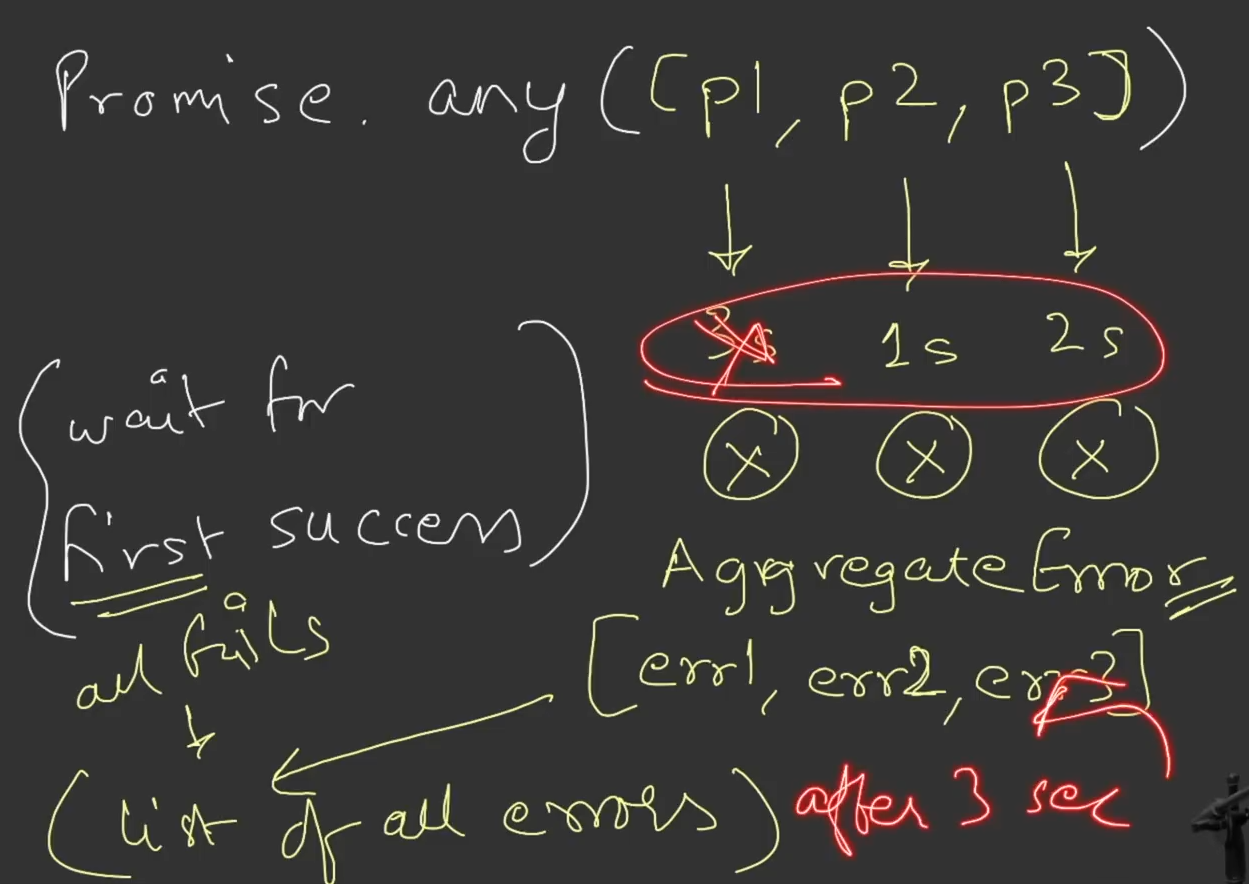 Promise. any([p1, p2, p3])
3s 1s 2s
X X X
wait for
first success
AggregateError
all fails
[err1, err2, err3]
(list of all errors)
after 3 sec